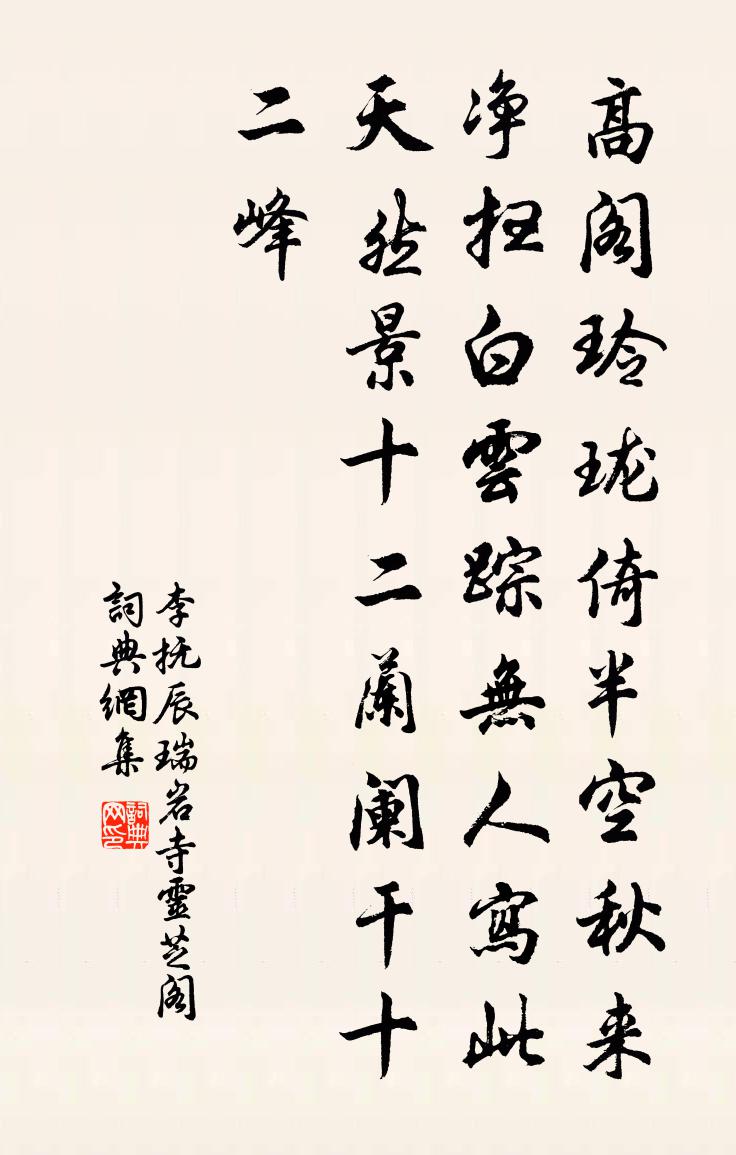 高閣玲珑倚半空秋来
净扫白雲踪無人寫此
天然景十二蘭闌干十
二峰
李抚辰瑞岩寺靈芝阁
詞典網集
詞典网印